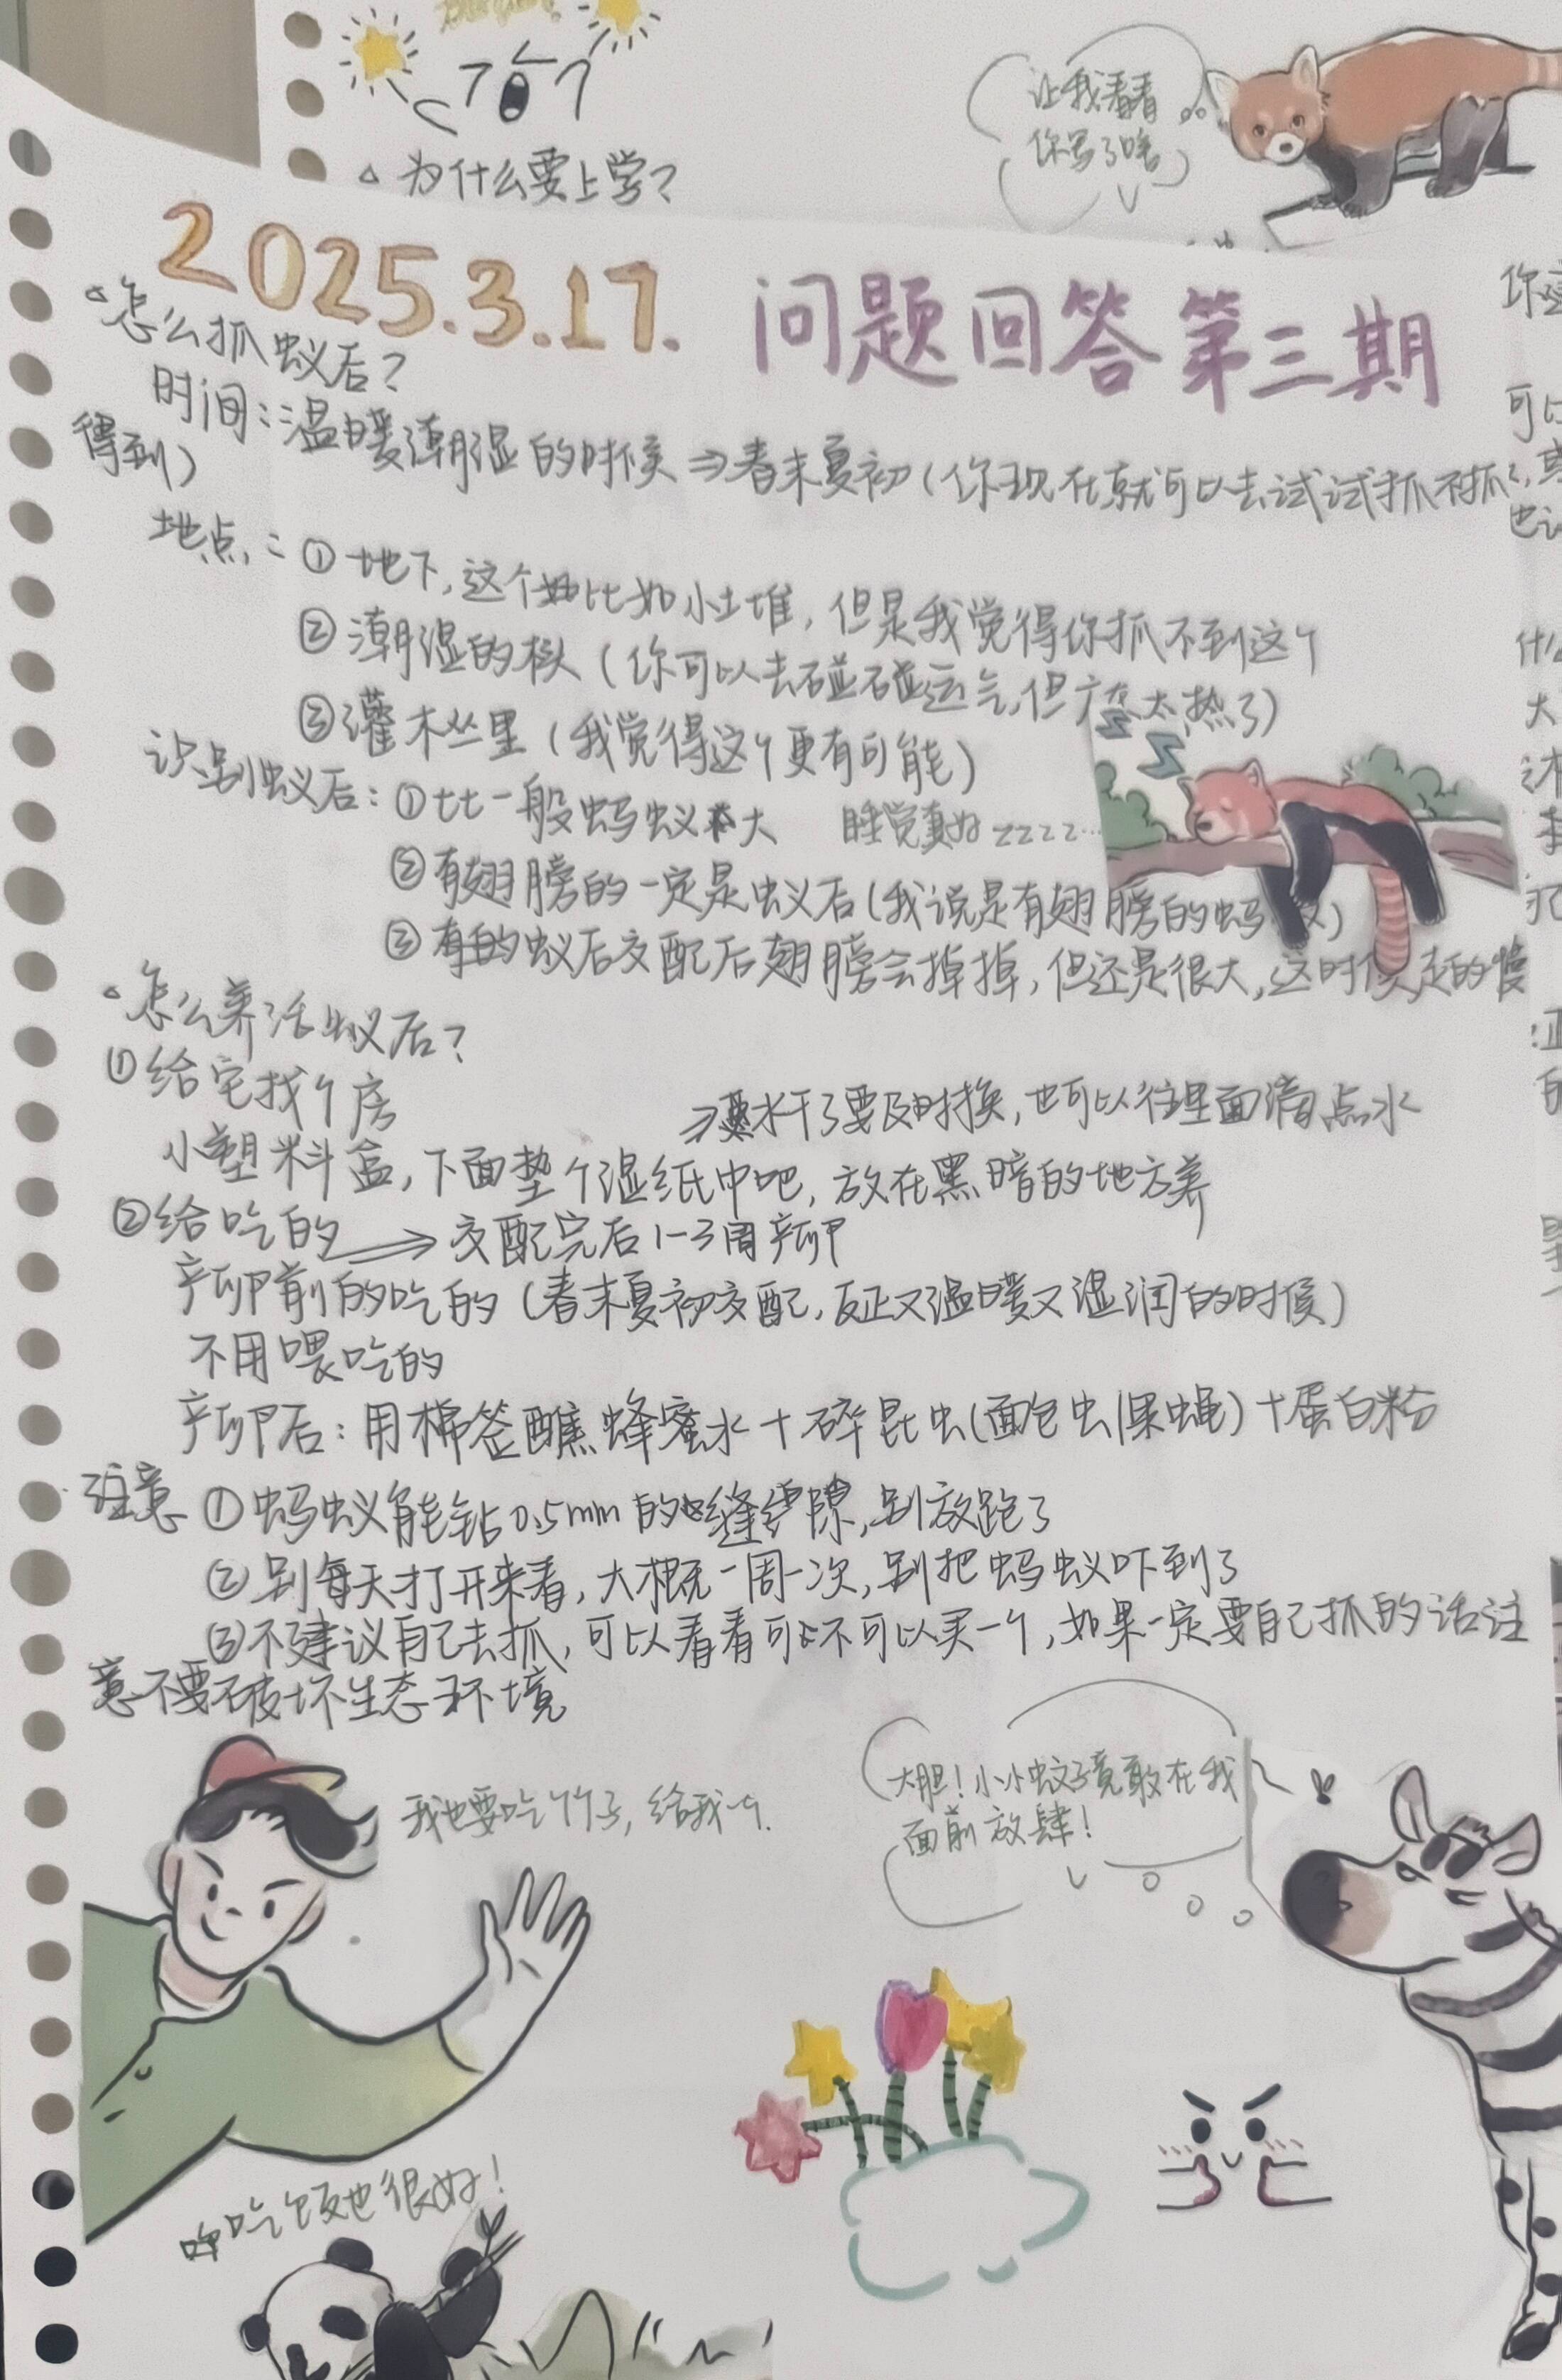 为什么要上学？
让我看看
你写了啥
2025.3.17. 问题回答第三期
怎么抓蚁后？
时间：温暖潮湿的时候⇒春末夏初（你现在就可以去试试抓不抓
得到）
地点：①地下，这个比如小土堆，但是我觉得你抓不到这个
②潮湿的木头（你可以去碰碰运气，但广东太热了）
③灌木丛里（我觉得这个更有可能）
识别蚁后：①比一般蚂蚁大
睡觉真好zzzz…
②有翅膀的一定是蚁后（我说是有翅膀的蚂蚁）
③有的蚁后交配后翅膀会掉掉，但还是很大，这时候走的慢
怎么养活蚁后？
①给它找个房
⇒水干了要及时换，也可以往里面滴点水
小塑料盒，下面垫个湿纸巾吧，放在黑暗的地方养
②给吃的⇒交配完后1-3周产卵
产卵前的吃的（春末夏初交配，反正又温暖又湿润的时候）
不用喂吃的
产卵后：用棉签蘸蜂蜜水+碎昆虫（面包虫/果蝇）+蛋白粉
注意①蚂蚁能钻0.5mm的缝隙，别放跑了
②别每天打开来看，大概一周一次，别把蚂蚁吓到了
③不建议自己去抓，可以看看可不可以买一个，如果一定要自己抓的话注
意不要破坏生态环境
我也要吃竹子，给我一个.
大胆！小小蚊子竟敢在我
面前放肆！
吃饭也很好！